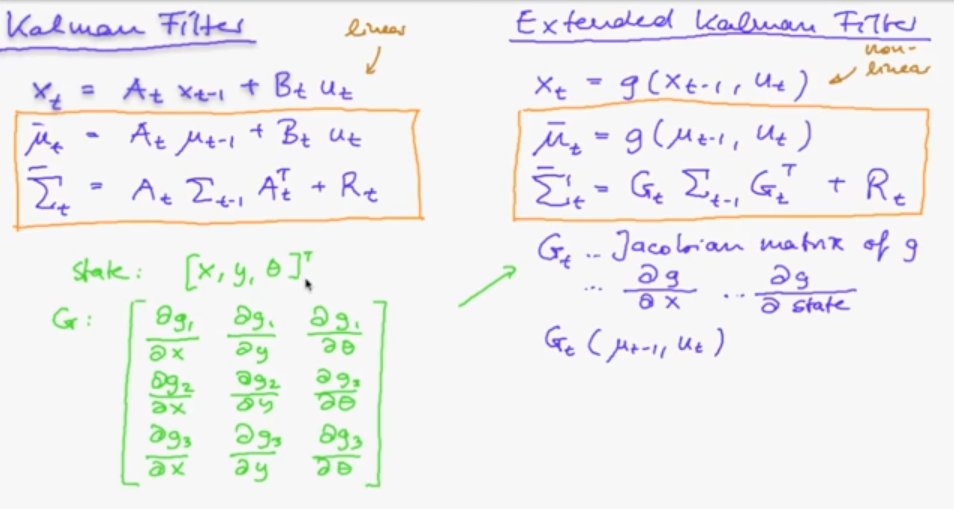 Kalman Filter
linear
x_t = A_t x_{t-1} + B_t u_t
μ̄_t = A_t μ_{t-1} + B_t u_t
Σ̄_t = A_t Σ_{t-1} A_t^T + R_t
State: [x, y, θ]^T
G:
∂g₁/∂x ∂g₁/∂y ∂g₁/∂θ
∂g₂/∂x ∂g₂/∂y ∂g₂/∂θ
∂g₃/∂x ∂g₃/∂y ∂g₃/∂θ
Extended Kalman Filter
non-
linear
x_t = g(x_{t-1}, u_t)
μ̄_t = g(μ_{t-1}, u_t)
Σ̄_t = G_t Σ_{t-1} G_t^T + R_t
G_t .. Jacobian matrix of g
... ∂g/∂x ... ∂g/∂ state
G_t (μ_{t-1}, u_t)